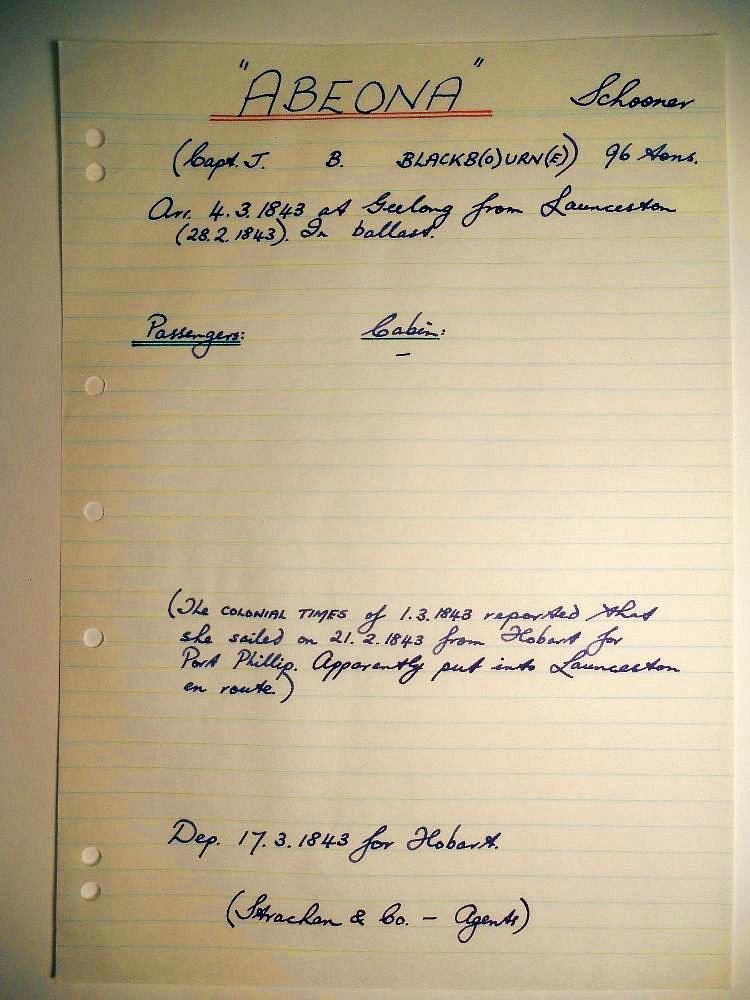 "ABEONA" Schooner
(Capt. J. B. BLACKB(O)URN(E)) 96 tons.
Arr. 4.3.1843 at Geelong from Launceston
(28.2.1843). In ballast.
Passengers: Cabin:
–
(The COLONIAL TIMES of 1.3.1843 reported that
she sailed on 21.2.1843 from Hobart for
Port Phillip. Apparently put into Launceston
en route.)
Dep. 17.3.1843 for Hobart.
(Strachan & Co. – Agents)